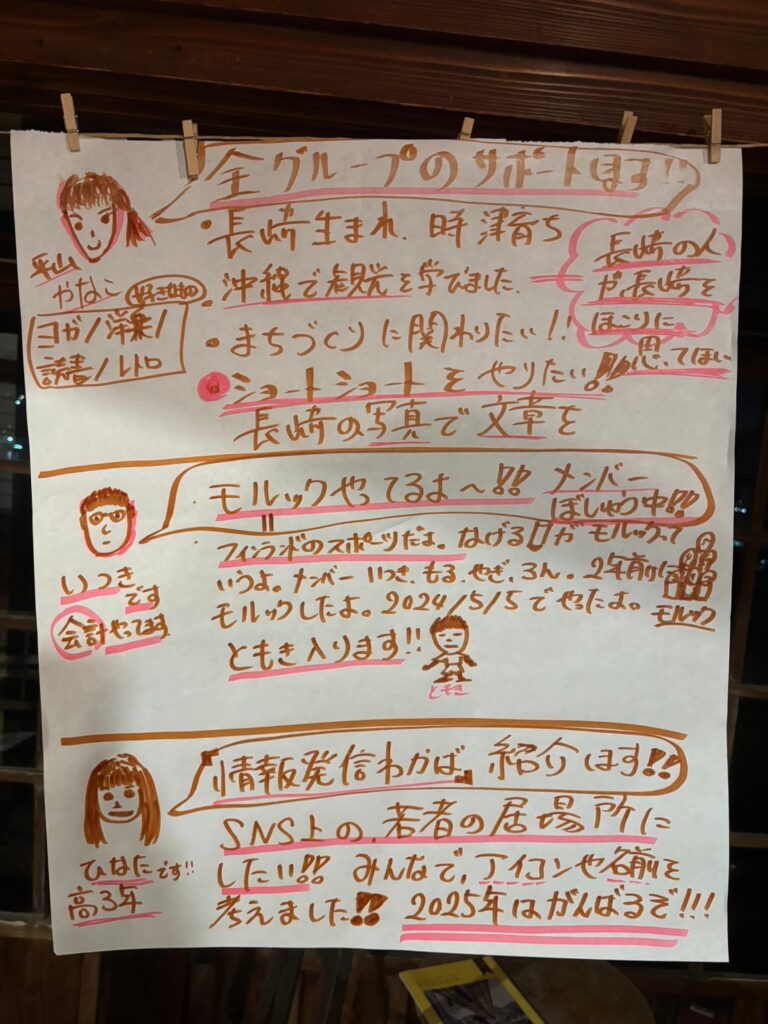 全グループのサポートします!!
平山
かなこ
好きなもの
ヨガ/洋楽/
読書/レトロ
・長崎生まれ、時津育ち
・沖縄で観光を学びました。
長崎の人
が長崎を
ほこりに
思ってほしい
・まちづくりに関わりたい!!
・ショートショートをやりたい!!
長崎の写真で文章を
モルックやってるよ〜!!
メンバー
ぼしゅう中!!
いつき
です
会計やってます
フィンランドのスポーツだよ。なげる が モルックって
いうよ。メンバー いつき、もる、やぎ、ろん。2年前に
モルックしたよ。2024/5/5でやったよ。
モルック
ともき入ります!!
ともき
情報発信わかば。紹介します!!
ひなたです!!
高3年
SNS上の、若者の居場所に
したい!! みんなで、アイコンや名前を
考えました!! 2025年はがんばるぞ!!!